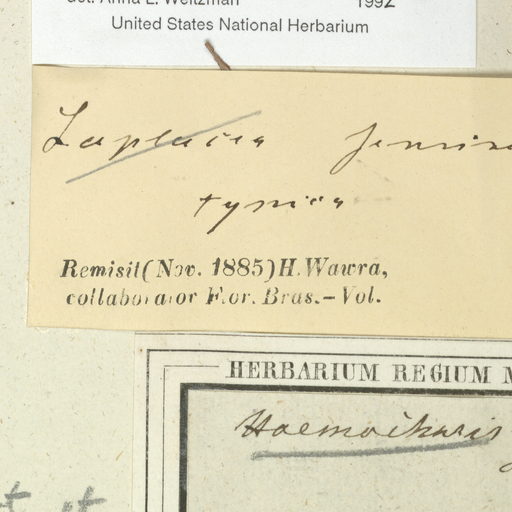 det. Anna L. Weitzman 1992
United States National Herbarium
Laplacea
typica
Remisit (Nov. 1885) H. Wawra,
collaborator Flor. Bras. – Vol.
HERBARIUM REGIUM M
Haemocharis